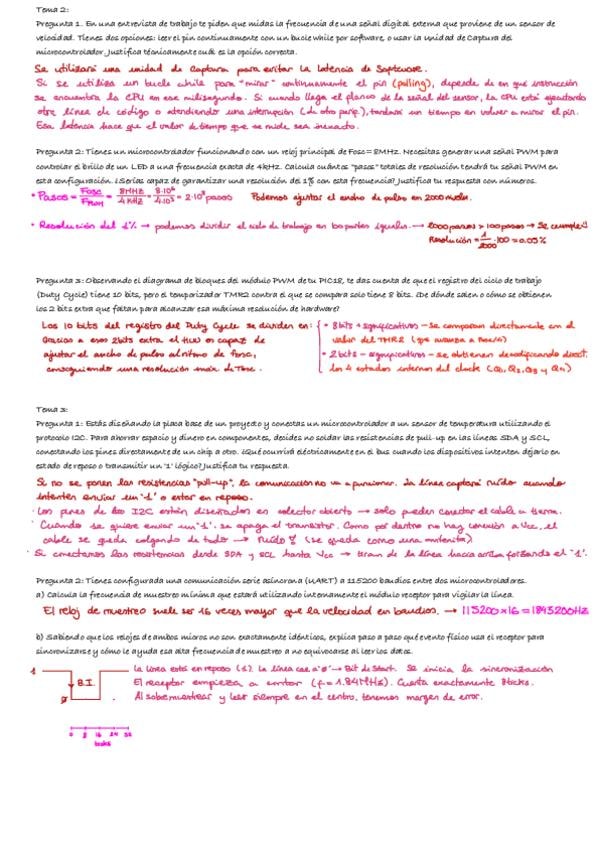 Tema 2:
Pregunta 1. En una entrevista de trabajo te piden que midas la frecuencia de una señal digital externa que proviene de un sensor de
velocidad. Tienes dos opciones: leer el pin continuamente con un bucle while por software, o usar la unidad de Captura del
microcontrolador. Justifica técnicamente cuál es la opción correcta.
Se utilizará una unidad de captura para evitar la latencia de Software.
Si se utiliza un bucle while para "mirar" continuamente el pin (polling), depende de en qué instrucción
se encuentra la CPU en ese milisegundo. Si cuando llega el flanco de la señal del sensor, la CPU está ejecutando
otra línea de código o atendiendo una interrupción (de otro perif.), tardará un tiempo en volver a mirar el pin.
Esa latencia hace que el valor de tiempo que se mide sea inexacto.
Pregunta 2: Tienes un microcontrolador funcionando con un reloj principal de Fosc = 8MHz. Necesitas generar una señal PWM para
controlar el brillo de un LED a una frecuencia exacta de 4kHz. Calcula cuántos "pasos" totales de resolución tendrá tu señal PWM en
esta configuración. ¿Serías capaz de garantizar una resolución del 1% con esta frecuencia? Justifica tu respuesta con números.
• Pasos = Fosc/FPWM = 8MHz/4KHz = 8·10⁶/4·10³ = 2·10³ pasos Podemos ajustar el ancho de pulso en 2000 niveles.
• Resolución del 1% → podemos dividir el ciclo de trabajo en 100 partes iguales. → 2000 pasos > 100 pasos → Se cumple
Resolución = 1/2000 · 100 = 0.05%
Pregunta 3: Observando el diagrama de bloques del módulo PWM de tu PIC18, te das cuenta de que el registro del ciclo de trabajo
(Duty Cycle) tiene 10 bits, pero el temporizador TMR2 contra el que se compara solo tiene 8 bits. ¿De dónde salen o cómo se obtienen
los 2 bits extra que faltan para alcanzar esa máxima resolución de hardware?
Los 10 bits del registro del Duty Cycle se dividen en: • 8 bits + significativos – se comparan directamente con el
Gracias a esos 2 bits extra el HW es capaz de valor del TMR2 (que avanza a Fosc/4)
ajustar el ancho de pulso al ritmo de fosc, • 2 bits – significativos – se obtienen decodificando direct.
consiguiendo una resolución máx. de Tosc. los 4 estados internos del clock (Q1, Q2, Q3 y Q4)
Tema 3:
Pregunta 1: Estás diseñando la placa base de un proyecto y conectas un microcontrolador a un sensor de temperatura utilizando el
protocolo I2C. Para ahorrar espacio y dinero en componentes, decides no soldar las resistencias de pull-up en las líneas SDA y SCL,
conectando los pines directamente de un chip a otro. ¿Qué ocurrirá eléctricamente en el bus cuando los dispositivos intenten dejarlo en
estado de reposo o transmitir un '1' lógico? Justifica tu respuesta.
Si no se ponen las resistencias "pull-up", la comunicación no va a funcionar. La línea captará ruido cuando
intenten enviar un '1' o estar en reposo.
· Los pines de los I2C están diseñados en colector abierto → solo pueden conectar el cable a tierra.
· Cuando se quiere enviar un '1', se apaga el transistor. Como por dentro no hay conexión a Vcc, el
cable se queda colgando de todo → Ruido (se queda como una antenita)
· Si conectamos las resistencias desde SDA y SCL hasta Vcc → tiran de la línea hacia arriba forzando el '1'.
Pregunta 2: Tienes configurada una comunicación serie asíncrona (UART) a 115200 baudios entre dos microcontroladores.
a) Calcula la frecuencia de muestreo mínima que estará utilizando internamente el módulo receptor para vigilar la línea.
El reloj de muestreo suele ser 16 veces mayor que la velocidad en baudios. → 115200 × 16 = 1843200Hz
b) Sabiendo que los relojes de ambos micros no son exactamente idénticos, explica paso a paso qué evento físico usa el receptor para
sincronizarse y cómo le ayuda esa alta frecuencia de muestreo a no equivocarse al leer los datos.
1 B.I. 0 La línea está en reposo (1). La línea cae a '0' → Bit de Start. Se inicia la sincronización
El receptor empieza a contar (f = 1.84MHz). Cuenta exactamente 8 ticks.
Al sobremuestrear y leer siempre en el centro, tenemos margen de error.
0 8 16 24 32
ticks